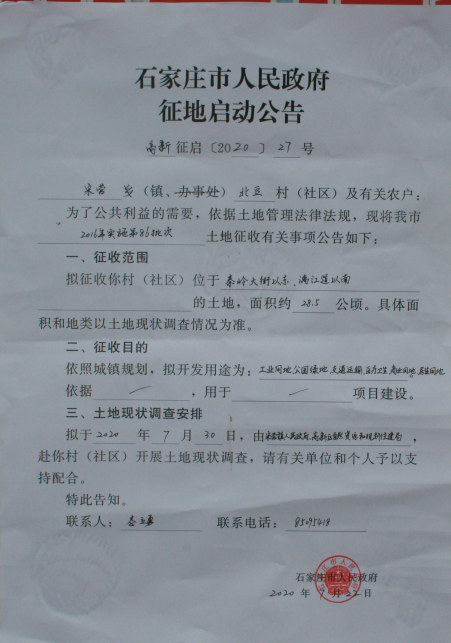 石家庄市人民政府
征地启动公告
高新征启〔2020〕27号
宋营乡(镇、办事处)北豆村(社区)及有关农户:
为了公共利益的需要,依据土地管理法律法规,现将我市
2016年实施第86批次土地征收有关事项公告如下:
一、征收范围
拟征收你村(社区)位于秦岭大街以东、漓江道以南
的土地,面积约28.5公顷。具体面
积和地类以土地现状调查情况为准。
二、征收目的
依照城镇规划,拟开发用途为:工业用地、公园绿地、交通运输、医疗卫生、商业用地、居住用地,
依据 / ,用于 / 项目建设。
三、土地现状调查安排
拟于2020年7月30日,由宋营镇人民政府、高新区自然资源和规划局,
赴你村(社区)开展土地现状调查,请有关单位和个人予以支
持配合。
特此告知。
联系人: 联系电话:85095418
石家庄市人民政府
2020年7月22日